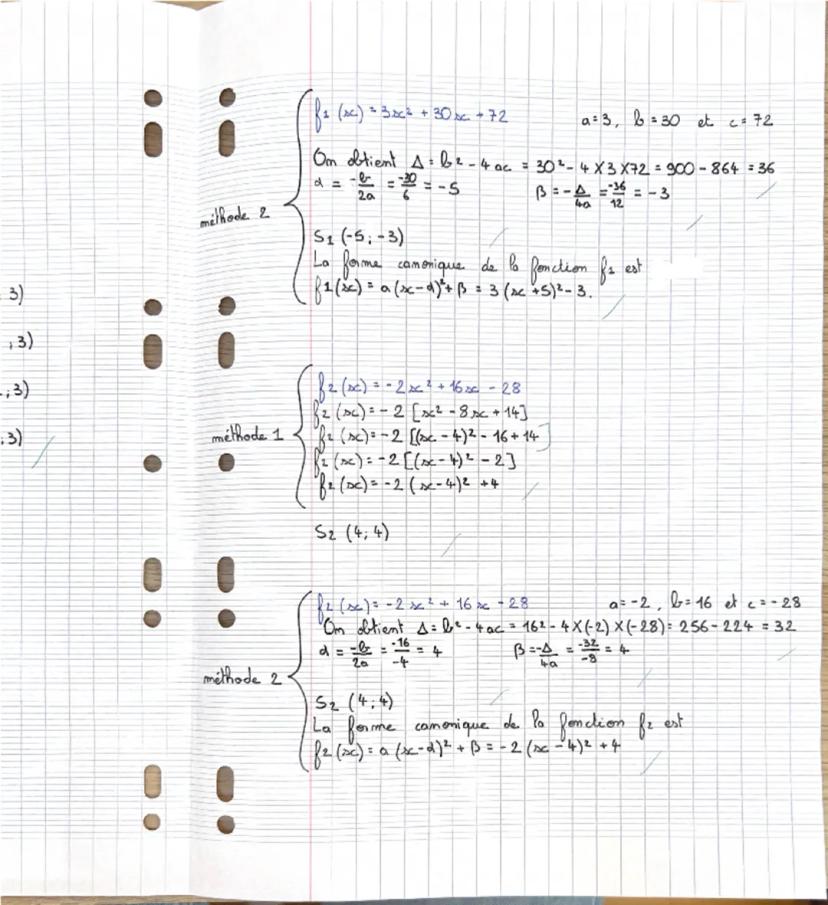 f1 (x) = 3x² + 30x + 72 a = 3, b = 30 et c = 72
On obtient Δ = b² - 4ac = 30² - 4 × 3 × 72 = 900 - 864 = 36
α = -b/2a = -30/6 = -5 β = -Δ/4a = -36/12 = -3
méthode 2
S1 (-5 ; -3)
La forme canonique de la fonction f1 est
f1(x) = a (x-α)² + β = 3 (x+5)² - 3.
3)
; 3)
; 3)
; 3)
f2 (x) = -2x² + 16x - 28
f2 (x) = -2 [x² - 8x + 14]
méthode 1
f2 (x) = -2 [(x - 4)² - 16 + 14]
f2 (x) = -2 [(x - 4)² - 2]
f2 (x) = -2 (x-4)² + 4
S2 (4 ; 4)
f2 (x) = -2x² + 16x - 28 a = -2, b = 16 et c = -28
On obtient Δ = b² - 4ac = 16² - 4 × (-2) × (-28) = 256 - 224 = 32
α = -b/2a = -16/-4 = 4 β = -Δ/4a = -32/-8 = 4
méthode 2
S2 (4 ; 4)
La forme canonique de la fonction f2 est
f2 (x) = a (x-α)² + β = -2 (x - 4)² + 4